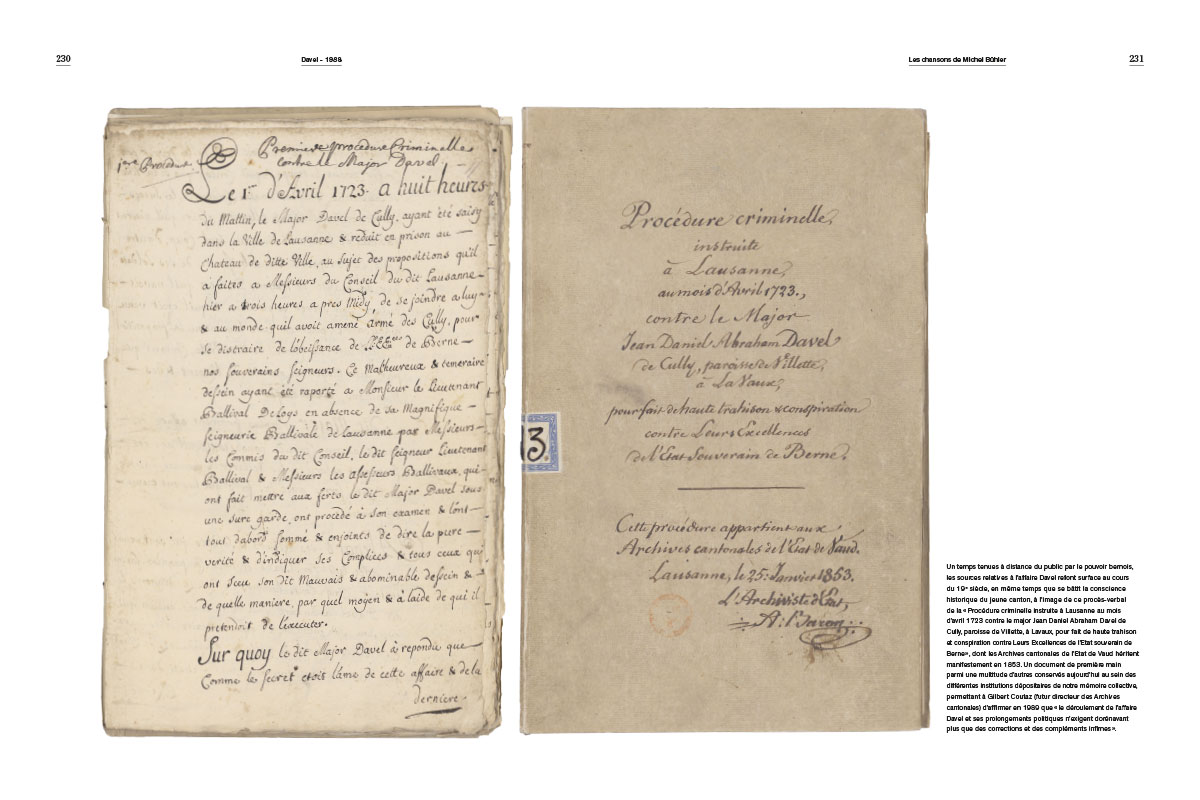 230
Davel - 1988
Les chansons de Michel Bühler
231
1ere Procedure
Premiere procedure Criminelle
contre le Major Davel
Le 1r d'Avril 1723. a huit heures
du Mattin, le Major Davel de Cully, ayant été saisy
dans la Ville de Lausanne & réduit en prison au
Chateau de ditte Ville, au sujet des propositions qu'il
a faites a Messieurs du Conseil du dit Lausanne
hier a trois heures a pres Midy, de se joindre a luy
& au monde quil avoit amené armé des Cully, pour
se distraire de l'obeissance de LL.EEces de Berne
nos souverains seigneurs. Ce Malheureux & temeraire
dessein ayant été raporté a Monsieur le Lieutenant
Ballival DeLoys en absence de sa Magnifique
seigneurie Ballivale de Lausanne par Messieurs
les Commis du dit Conseil, le dit seigneur Lieutenant
Ballival & Messieurs les assesseurs Ballivaux, qui
ont fait mettre aux ferts le dit Major Davel sous
une sure garde, ont procédé à son examen & l'ont
tout dabord sommé & enjoints de dire la pure
verité & d'indiquer ses Complices & tous ceux qui
ont sceu son dit Mauvais & abominable dessein &
de quelle maniere, par quel moyen & à laide de qui il
pretendoit de l'executer.
Sur quoy le dit Major Davel à repondu que
Comme le secret etoit lame de cette affaire & de la
derniere
3.
Procédure criminelle,
instruite
à Lausanne,
au mois d'Avril 1723.,
contre le Major
Jean Daniel Abraham Davel
de Cully, paroisse de Villette,
à La Vaux,
pour fait de haute trahison & conspiration
contre Leurs Excellences
de l'Etat Souverain de Berne.
Cette procédure appartient aux
Archives cantonales de l'Etat de Vaud.
Lausanne, le 25: Janvier 1853.
L'Archiviste d'Etat,
Un temps tenues à distance du public par le pouvoir bernois,
les sources relatives à l'affaire Davel refont surface au cours
du 19e siècle, en même temps que se bâtit la conscience
historique du jeune canton, à l'image de ce procès-verbal
de la « Procédure criminelle instruite à Lausanne au mois
d'avril 1723 contre le major Jean Daniel Abraham Davel de
Cully, paroisse de Villette, à Lavaux, pour fait de haute trahison
et conspiration contre Leurs Excellences de l'Etat souverain de
Berne », dont les Archives cantonales de l'Etat de Vaud héritent
manifestement en 1853. Un document de première main
parmi une multitude d'autres conservés aujourd'hui au sein des
différentes institutions dépositaires de notre mémoire collective,
permettant à Gilbert Coutaz (futur directeur des Archives
cantonales) d'affirmer en 1989 que « le déroulement de l'affaire
Davel et ses prolongements politiques n'exigent dorénavant
plus que des corrections et des compléments infimes ».